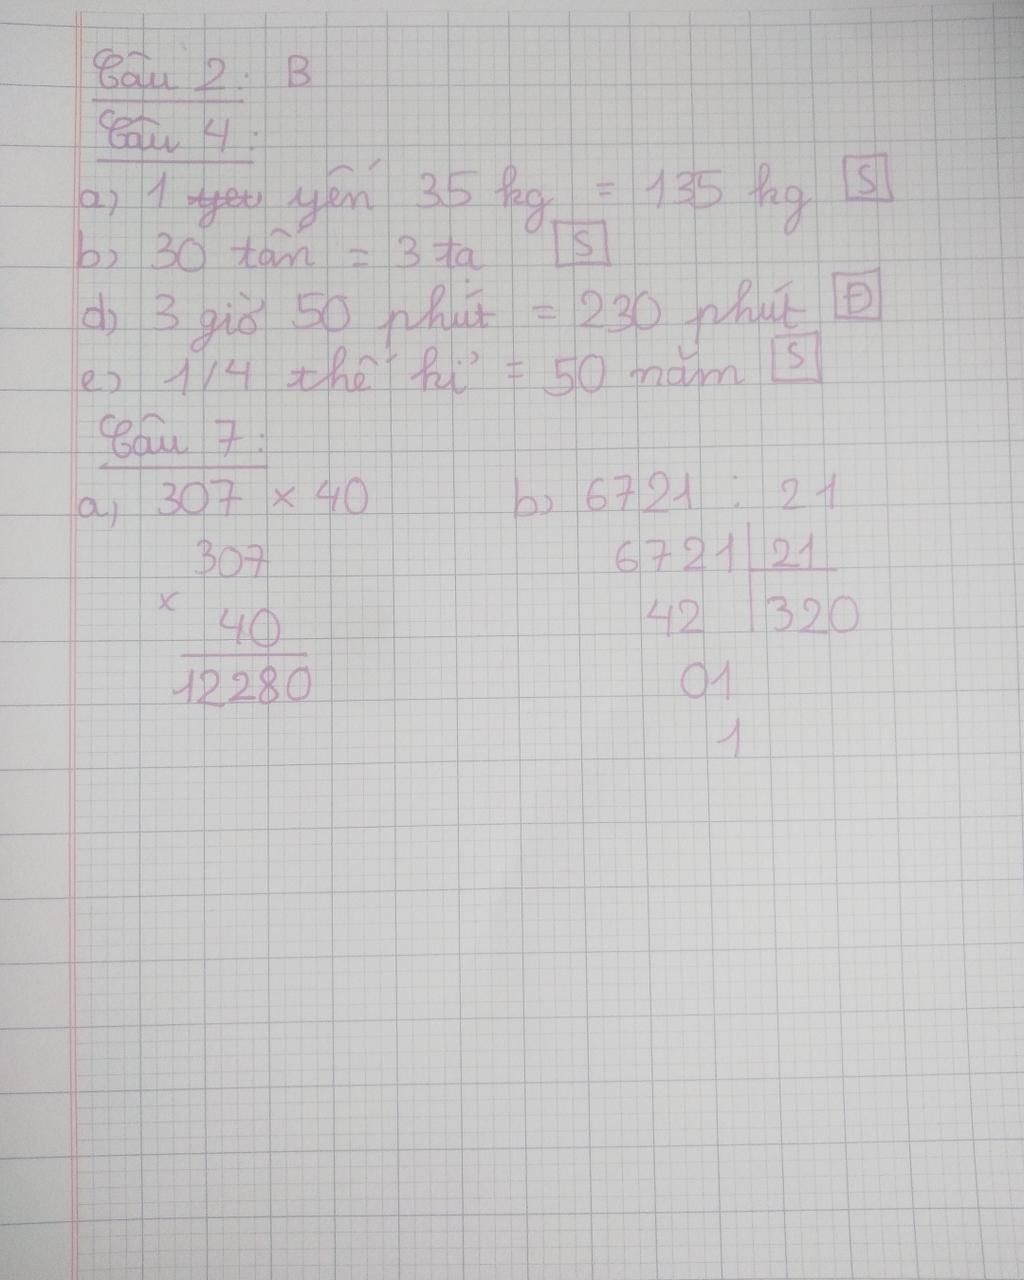 Câu 2: B
Câu 4:
a) 1 yến 35 kg = 135 kg S
b) 30 tấn = 3 tạ S
d) 3 giờ 50 phút = 230 phút Đ
e) 1/4 thế kỉ = 50 năm S
Câu 7:
a) 307 × 40 b) 6721 : 21
307 6721 21
×
40 42 320
12280 01
1